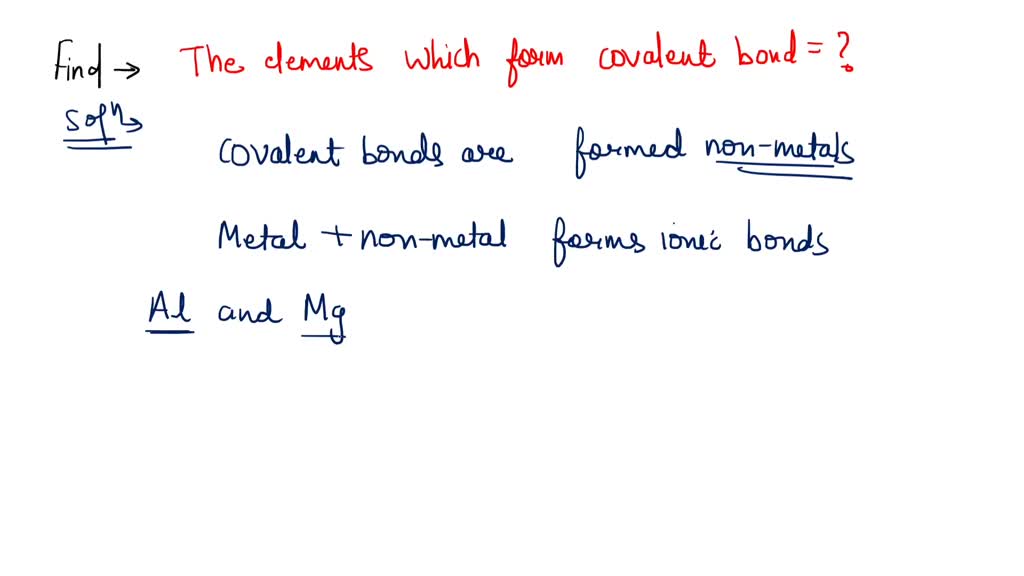 Find → The elements which form covalent bond = ?
Solⁿ→
covalent bonds are formed non-metals
Metal + non-metal forms ionic bonds
Al and Mg